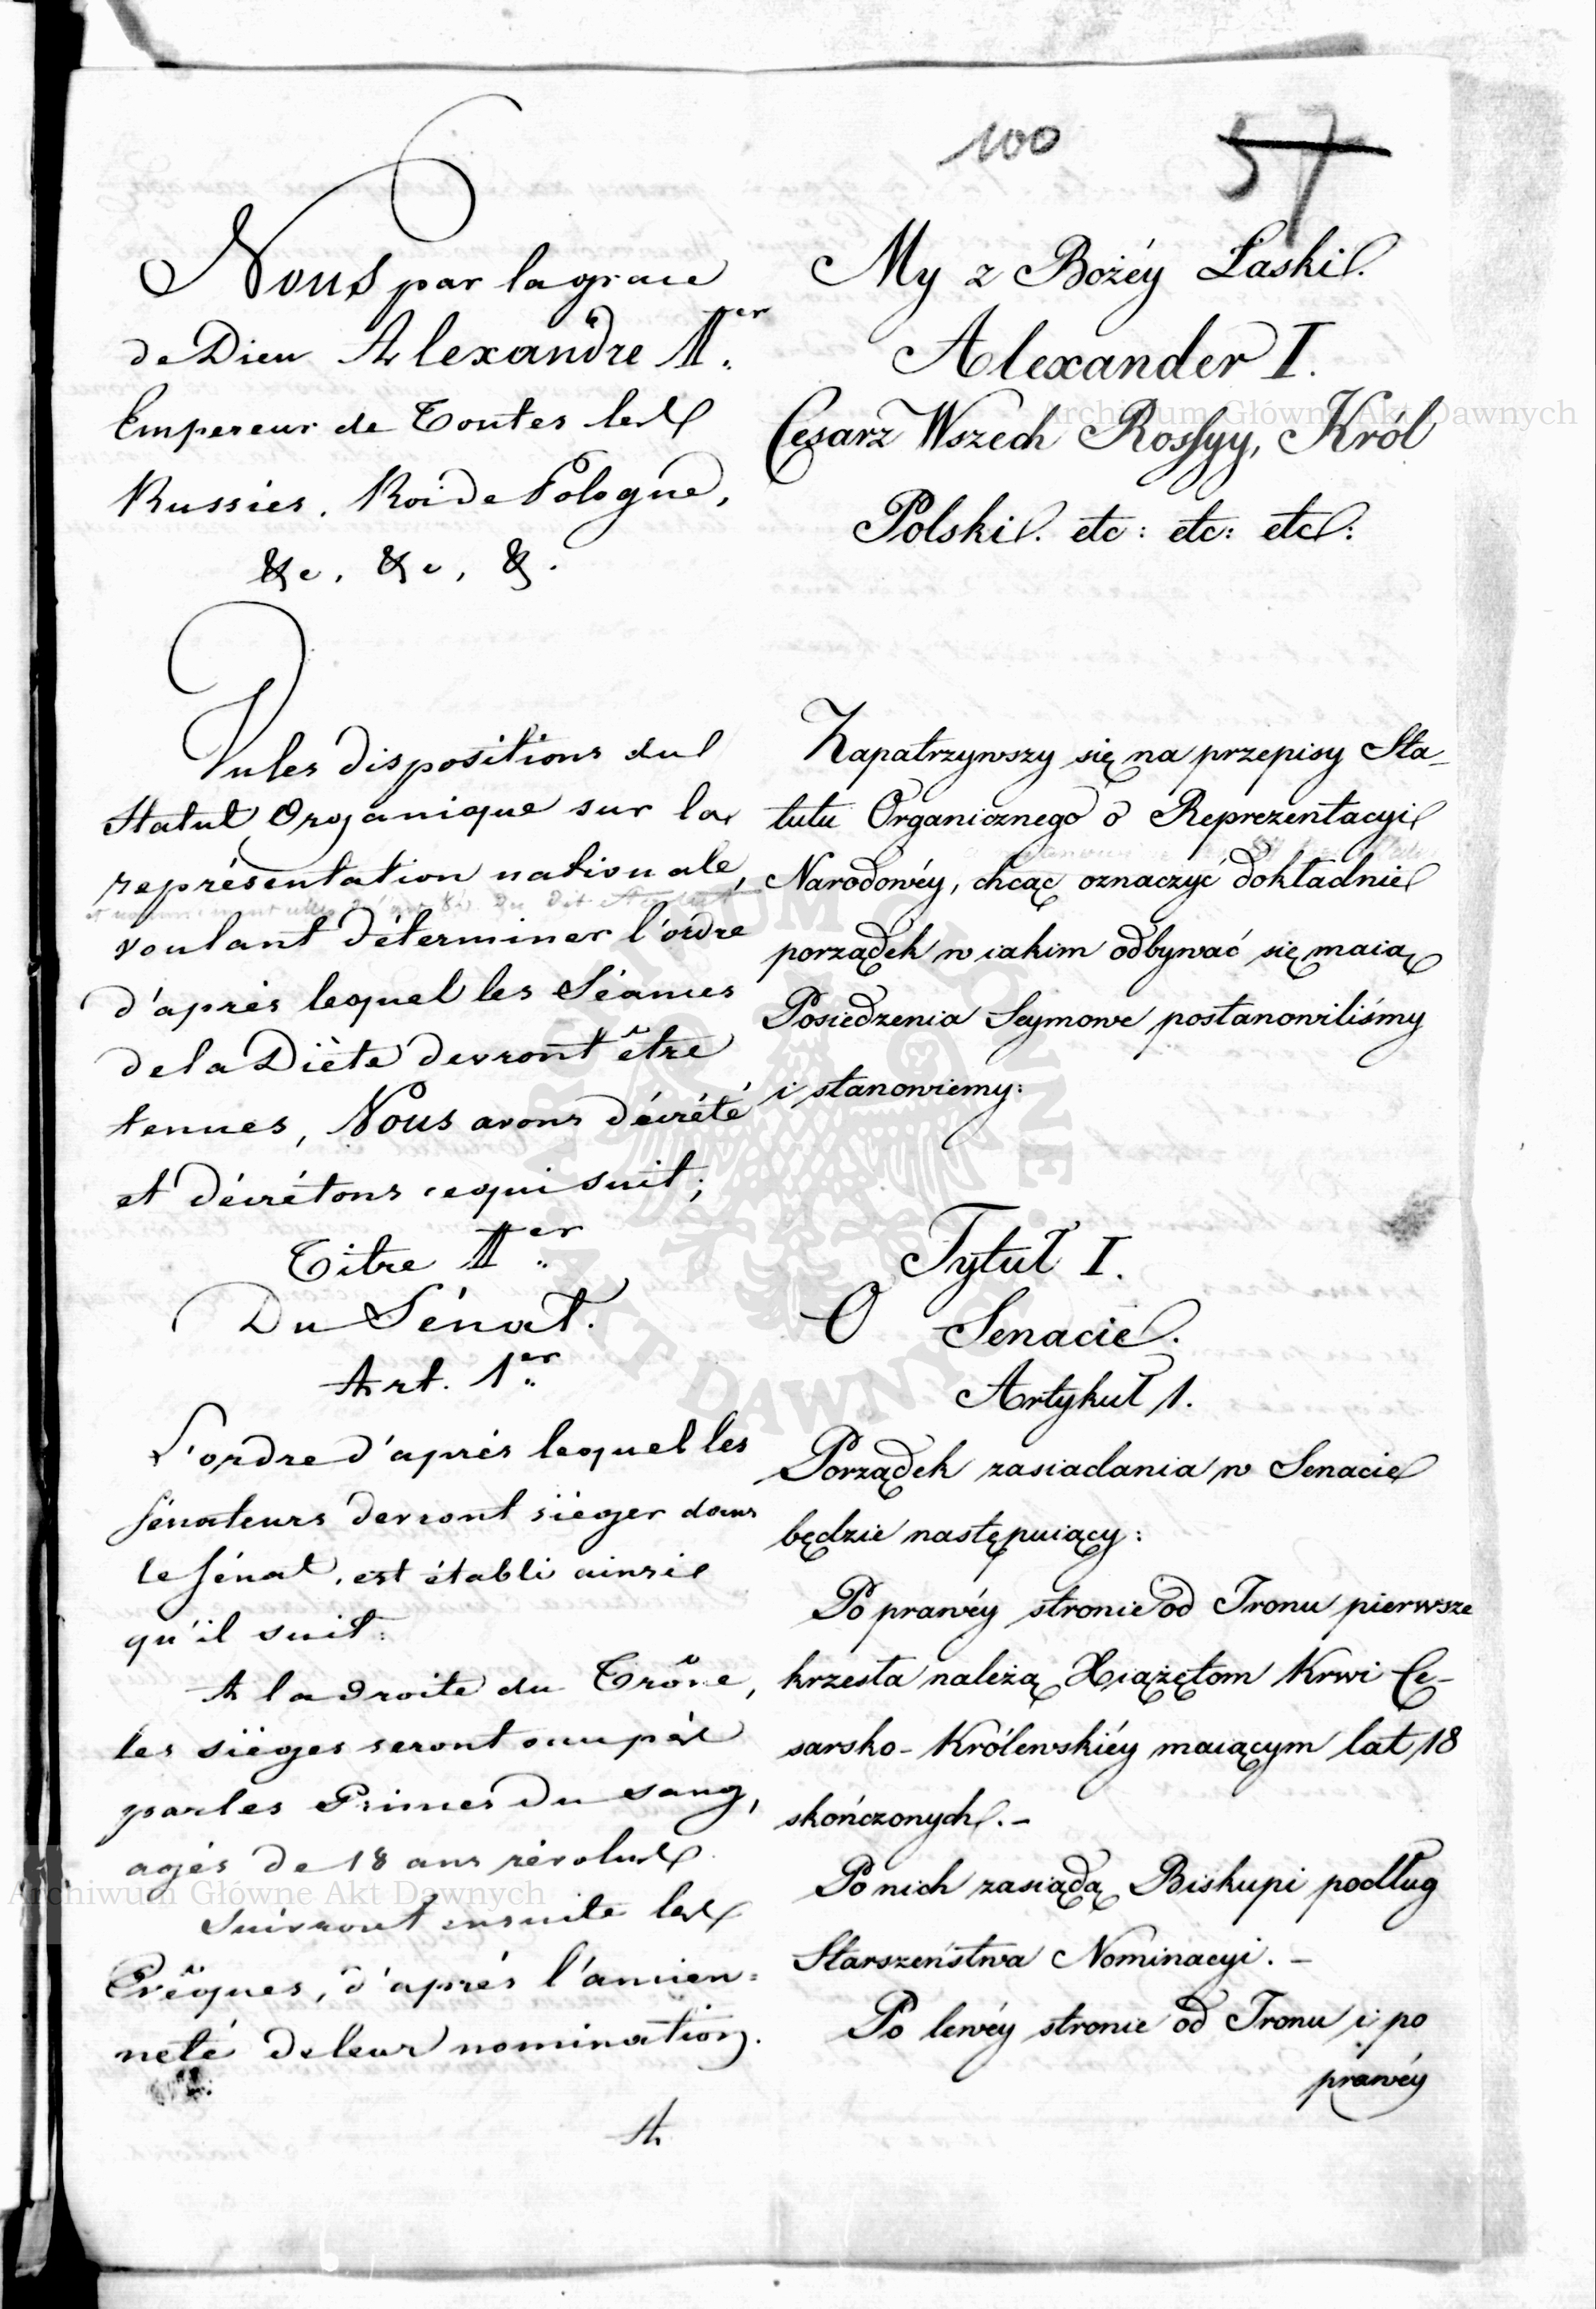 100
57
Nous par la grace
de Dieu Alexandre 1er
Empereur de Toutes les
Russies, Roi de Pologne,
&c, &c, &.
Vu les dispositions du
Statut Organique sur la
représentation nationale,
voulant déterminer l'ordre
d'après lequel les Séances
de la Diète devront être
tenues, Nous avons décrété
et décrétons ce qui suit;
Titre 1er
Du Sénat.
Art. 1er
L'ordre d'après lequel les
Sénateurs devront siéger dans
le Sénat, est établi ainsi
qu'il suit:
A la droite du Trône,
les siéges seront occupés
par les Princes du Sang,
agés de 18 ans révolus.
Suivront ensuite les
Evêques, d'après l'ancien=
neté de leur nomination.
A
My z Bożéy Łaski
Alexander I.
Cesarz Wszech Rossyy, Król
Polski. etc: etc: etc:
Zapatrzywszy się na przepisy Sta-
tutu Organicznego o Reprezentacyi
Narodowéy, chcąc oznaczyć dokładnie
porządek w iakim odbywać się maią
Posiedzenia Seymowe postanowiliśmy
i stanowiemy:
Tytuł I.
O Senacie.
Artykuł 1.
Porządek zasiadania w Senacie
będzie następuiący:
Po prawéy stronie od Tronu pierwsze
krzesła należą Xiążętom Krwi Ce-
sarsko-Królewskiéy maiącym lat 18
skończonych. -
Po nich zasiądą Biskupi podług
Starszeństwa Nominacyi. -
Po lewéy stronie od Tronu i po
prawéy
Archiwum Główne Akt Dawnych
Archiwum Główne Akt Dawnych
ARCHIWUM GŁÓWNE AKT DAWNYCH